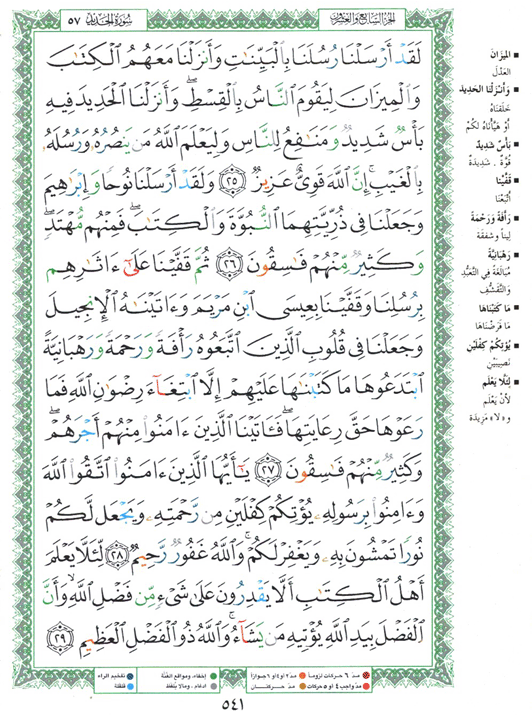 الجزء السابع والعشرون
سورة الحديد ٥٧
لَقَدْ أَرْسَلْنَا رُسُلَنَا بِالْبَيِّنَاتِ وَأَنزَلْنَا مَعَهُمُ الْكِتَابَ
وَالْمِيزَانَ لِيَقُومَ النَّاسُ بِالْقِسْطِ ۖ وَأَنزَلْنَا الْحَدِيدَ فِيهِ
بَأْسٌ شَدِيدٌ وَمَنَافِعُ لِلنَّاسِ وَلِيَعْلَمَ اللَّهُ مَن يَنصُرُهُ وَرُسُلَهُ
بِالْغَيْبِ ۚ إِنَّ اللَّهَ قَوِيٌّ عَزِيزٌ ٢٥ وَلَقَدْ أَرْسَلْنَا نُوحًا وَإِبْرَاهِيمَ
وَجَعَلْنَا فِي ذُرِّيَّتِهِمَا النُّبُوَّةَ وَالْكِتَابَ ۖ فَمِنْهُم مُّهْتَدٍ ۖ
وَكَثِيرٌ مِّنْهُمْ فَاسِقُونَ ٢٦ ثُمَّ قَفَّيْنَا عَلَىٰ ءَاثَارِهِم
بِرُسُلِنَا وَقَفَّيْنَا بِعِيسَى ابْنِ مَرْيَمَ وَءَاتَيْنَاهُ الْإِنجِيلَ
وَجَعَلْنَا فِي قُلُوبِ الَّذِينَ اتَّبَعُوهُ رَأْفَةً وَرَحْمَةً وَرَهْبَانِيَّةً
ابْتَدَعُوهَا مَا كَتَبْنَاهَا عَلَيْهِمْ إِلَّا ابْتِغَاءَ رِضْوَانِ اللَّهِ فَمَا
رَعَوْهَا حَقَّ رِعَايَتِهَا ۖ فَـَٔاتَيْنَا الَّذِينَ ءَامَنُوا مِنْهُمْ أَجْرَهُمْ ۖ
وَكَثِيرٌ مِّنْهُمْ فَاسِقُونَ ٢٧ يَا أَيُّهَا الَّذِينَ ءَامَنُوا اتَّقُوا اللَّهَ
وَءَامِنُوا بِرَسُولِهِ يُؤْتِكُمْ كِفْلَيْنِ مِن رَّحْمَتِهِ وَيَجْعَل لَّكُمْ
نُورًا تَمْشُونَ بِهِ وَيَغْفِرْ لَكُمْ ۚ وَاللَّهُ غَفُورٌ رَّحِيمٌ ٢٨ لِّئَلَّا يَعْلَمَ
أَهْلُ الْكِتَابِ أَلَّا يَقْدِرُونَ عَلَىٰ شَيْءٍ مِّن فَضْلِ اللَّهِ ۙ وَأَنَّ
الْفَضْلَ بِيَدِ اللَّهِ يُؤْتِيهِ مَن يَشَاءُ ۚ وَاللَّهُ ذُو الْفَضْلِ الْعَظِيمِ ٢٩
الميزان
العَدْلَ
وأنزلنا الحديد
خَلَقْنَاهُ
أو هَيَّأْنَاهُ لَكُمْ
بأس شديد
قُوَّةٌ شديدةٌ
قفّينا
أَتْبَعْنَا
رأفة ورحمة
ليناً وشفقة
رهبانية
مُبَالَغَةً في التَّعَبُّدِ
والتَّقَشُّفِ
ما كتبناها
ما فَرَضْنَاهَا
يؤتكم كفلين
نَصِيبَيْنِ
لئلا يعلم
لأَنْ يَعْلَمَ
و «لا» مَزِيدَة
مدّ ٦ حركات لزوماً
مدّ ٢ أو ٤ أو ٦ جوازاً
إخفاء، ومواقع الغنّة
تفخيم الراء
مدّ واجب ٤ أو ٥ حركات
مدّ حركتان
إدغام، وما لا يُلفظ
قلقلة
٥٤١